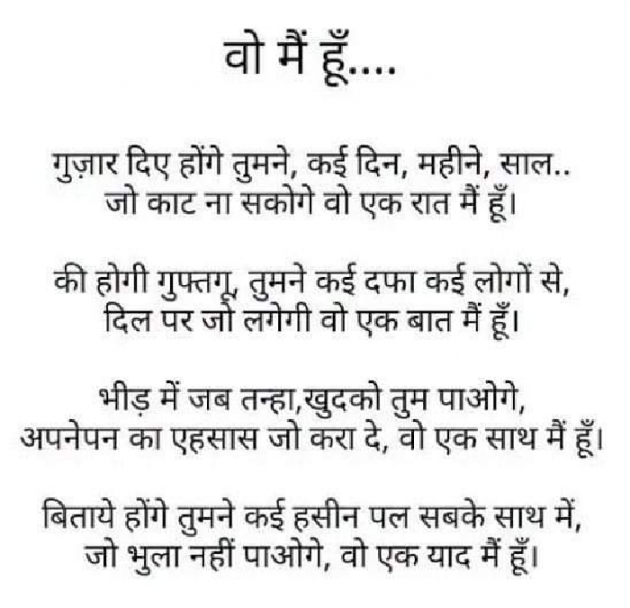 वो मैं हूँ....
गुज़ार दिए होंगे तुमने, कई दिन, महीने, साल..
जो काट ना सकोगे वो एक रात मैं हूँ।
की होगी गुफ्तगू, तुमने कई दफा कई लोगों से,
दिल पर जो लगेगी वो एक बात मैं हूँ।
भीड़ में जब तन्हा,खुदको तुम पाओगे,
अपनेपन का एहसास जो करा दे, वो एक साथ मैं हूँ।
बिताये होंगे तुमने कई हसीन पल सबके साथ में,
जो भुला नहीं पाओगे, वो एक याद मैं हूँ।